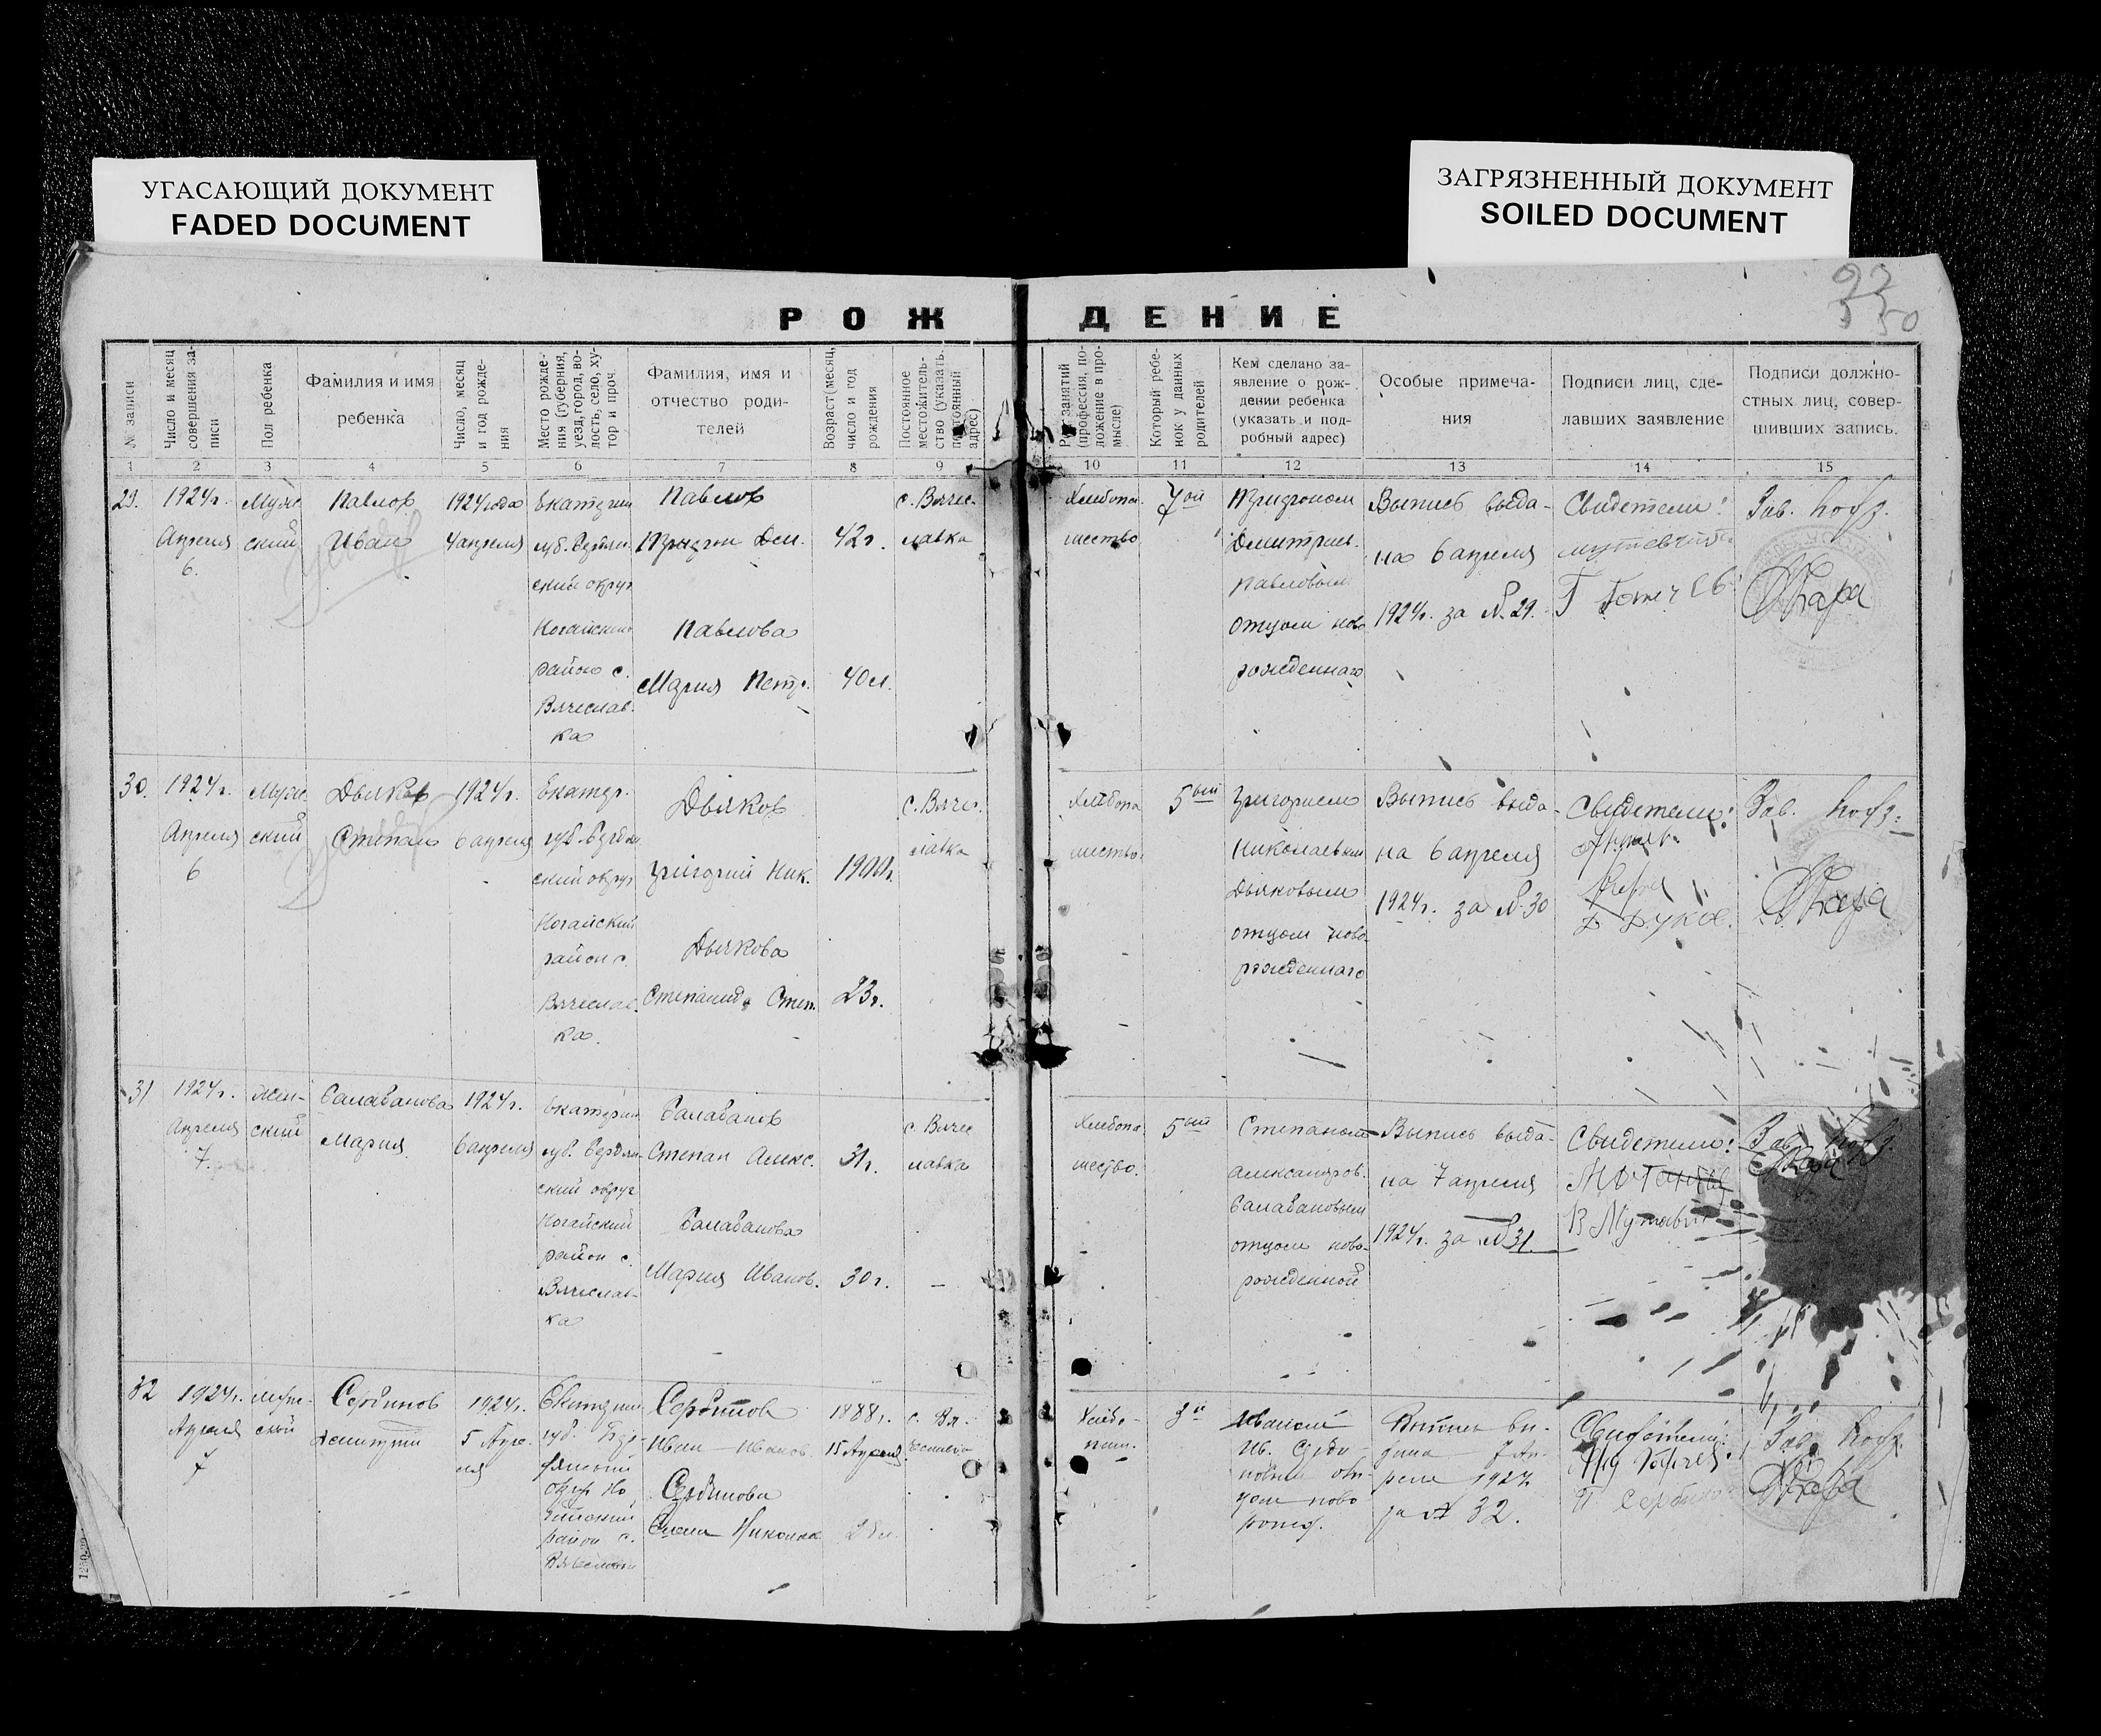 УГАСАЮЩИЙ ДОКУМЕНТ
FADED DOCUMENT
ЗАГРЯЗНЕННЫЙ ДОКУМЕНТ
SOILED DOCUMENT
50
РОЖДЕНИЕ
№ записи
Число и месяц
совершения за-
писи
Пол ребенка
Фамилия и имя
ребенка
Число, месяц
и год рожде-
ния
Место рожде-
ния (губерния,
уезд, город, во-
лость, село, ху-
тор и проч.
Фамилия, имя и
отчество роди-
телей
Возраст (месяц,
число и год
рождения
Постоянное
местожитель-
ство (указать
постоянный
адрес)
Род занятий
(профессия, по-
ложение в про-
мысле)
Который ребе-
нок у данных
родителей
Кем сделано за-
явление о рож-
дении ребенка
(указать и под-
робный адрес)
Особые примеча-
ния
Подписи лиц, сде-
лавших заявление
Подписи должно-
стных лиц, совер-
шивших запись.
1 2 3 4 5 6 7 8 9 10 11 12 13 14 15
29.
1924г.
Апреля
6.
Муж
ский
Павлов
Иван
1924 года
4 апреля
Екатерин
губ. Бердян
ский округ
Ногайский
район с.
Вячеслав-
ка
Павлов
Дм.
Павлова
Мария Петр.
42г.
40л.
с. Вячес
лавка
Хлебопа
шество
7ой
Дмитриев.
Павловым
отцом ново
рожденнаго
Выпись выда-
на 6 апреля
1924г. за №29.
Свидетели:
Зав.
30.
1924г.
Апреля
6
Муж
ский
Дьяков
Степан
1924г.
6 апреля
Екатер.
губ. Бердян
ский округ
Ногайский
район с.
Вячеслав-
ка.
Дьяков
Григорий Ник.
Дьякова
Степанида Степ.
1900г.
23г.
с. Вячес
лавка
Хлебопа
шество.
5ый
Григорием
Николаевым
Дьяковым
отцом ново
рожденнаго
Выпись выда-
на 6 апреля
1924г. за №30
Свидетели:
Зав.
31
1924г.
Апреля
7.
Жен-
ский
Балабанова
Мария
1924г.
6 апреля
Екатерин
губ. Бердян-
ский округ
Ногайский
район с.
Вячеслав-
ка
Балабанов
Степан Алекс.
Балабанова
Мария Иванов.
31г.
30г.
с. Вячес
лавка
Хлебопа
шество.
5ый
Степаном
Александров.
Балабановым
отцом ново-
рожденной
Выпись выда-
на 7 апреля
1924г. за №31.
Свидетели:
Зав.
32
1924г.
Апреля
7
муж-
ской
Сербинов
Димитрий
1924г.
5 Апре-
ля
Екатерин
губ. Бер-
дянский
округ Но
гайский
район с.
Сербинов
Иван Иванов
Сербинова
1888г.
15 Апреля
с. Вя-
Хлебо-
паш.
3й
Иваном
Ив. Серби-
новым от-
цом ново
рожд.
Выпись вы-
дана 7 Ап-
реля 1924
за № 32.
Свидетели:
Зав.